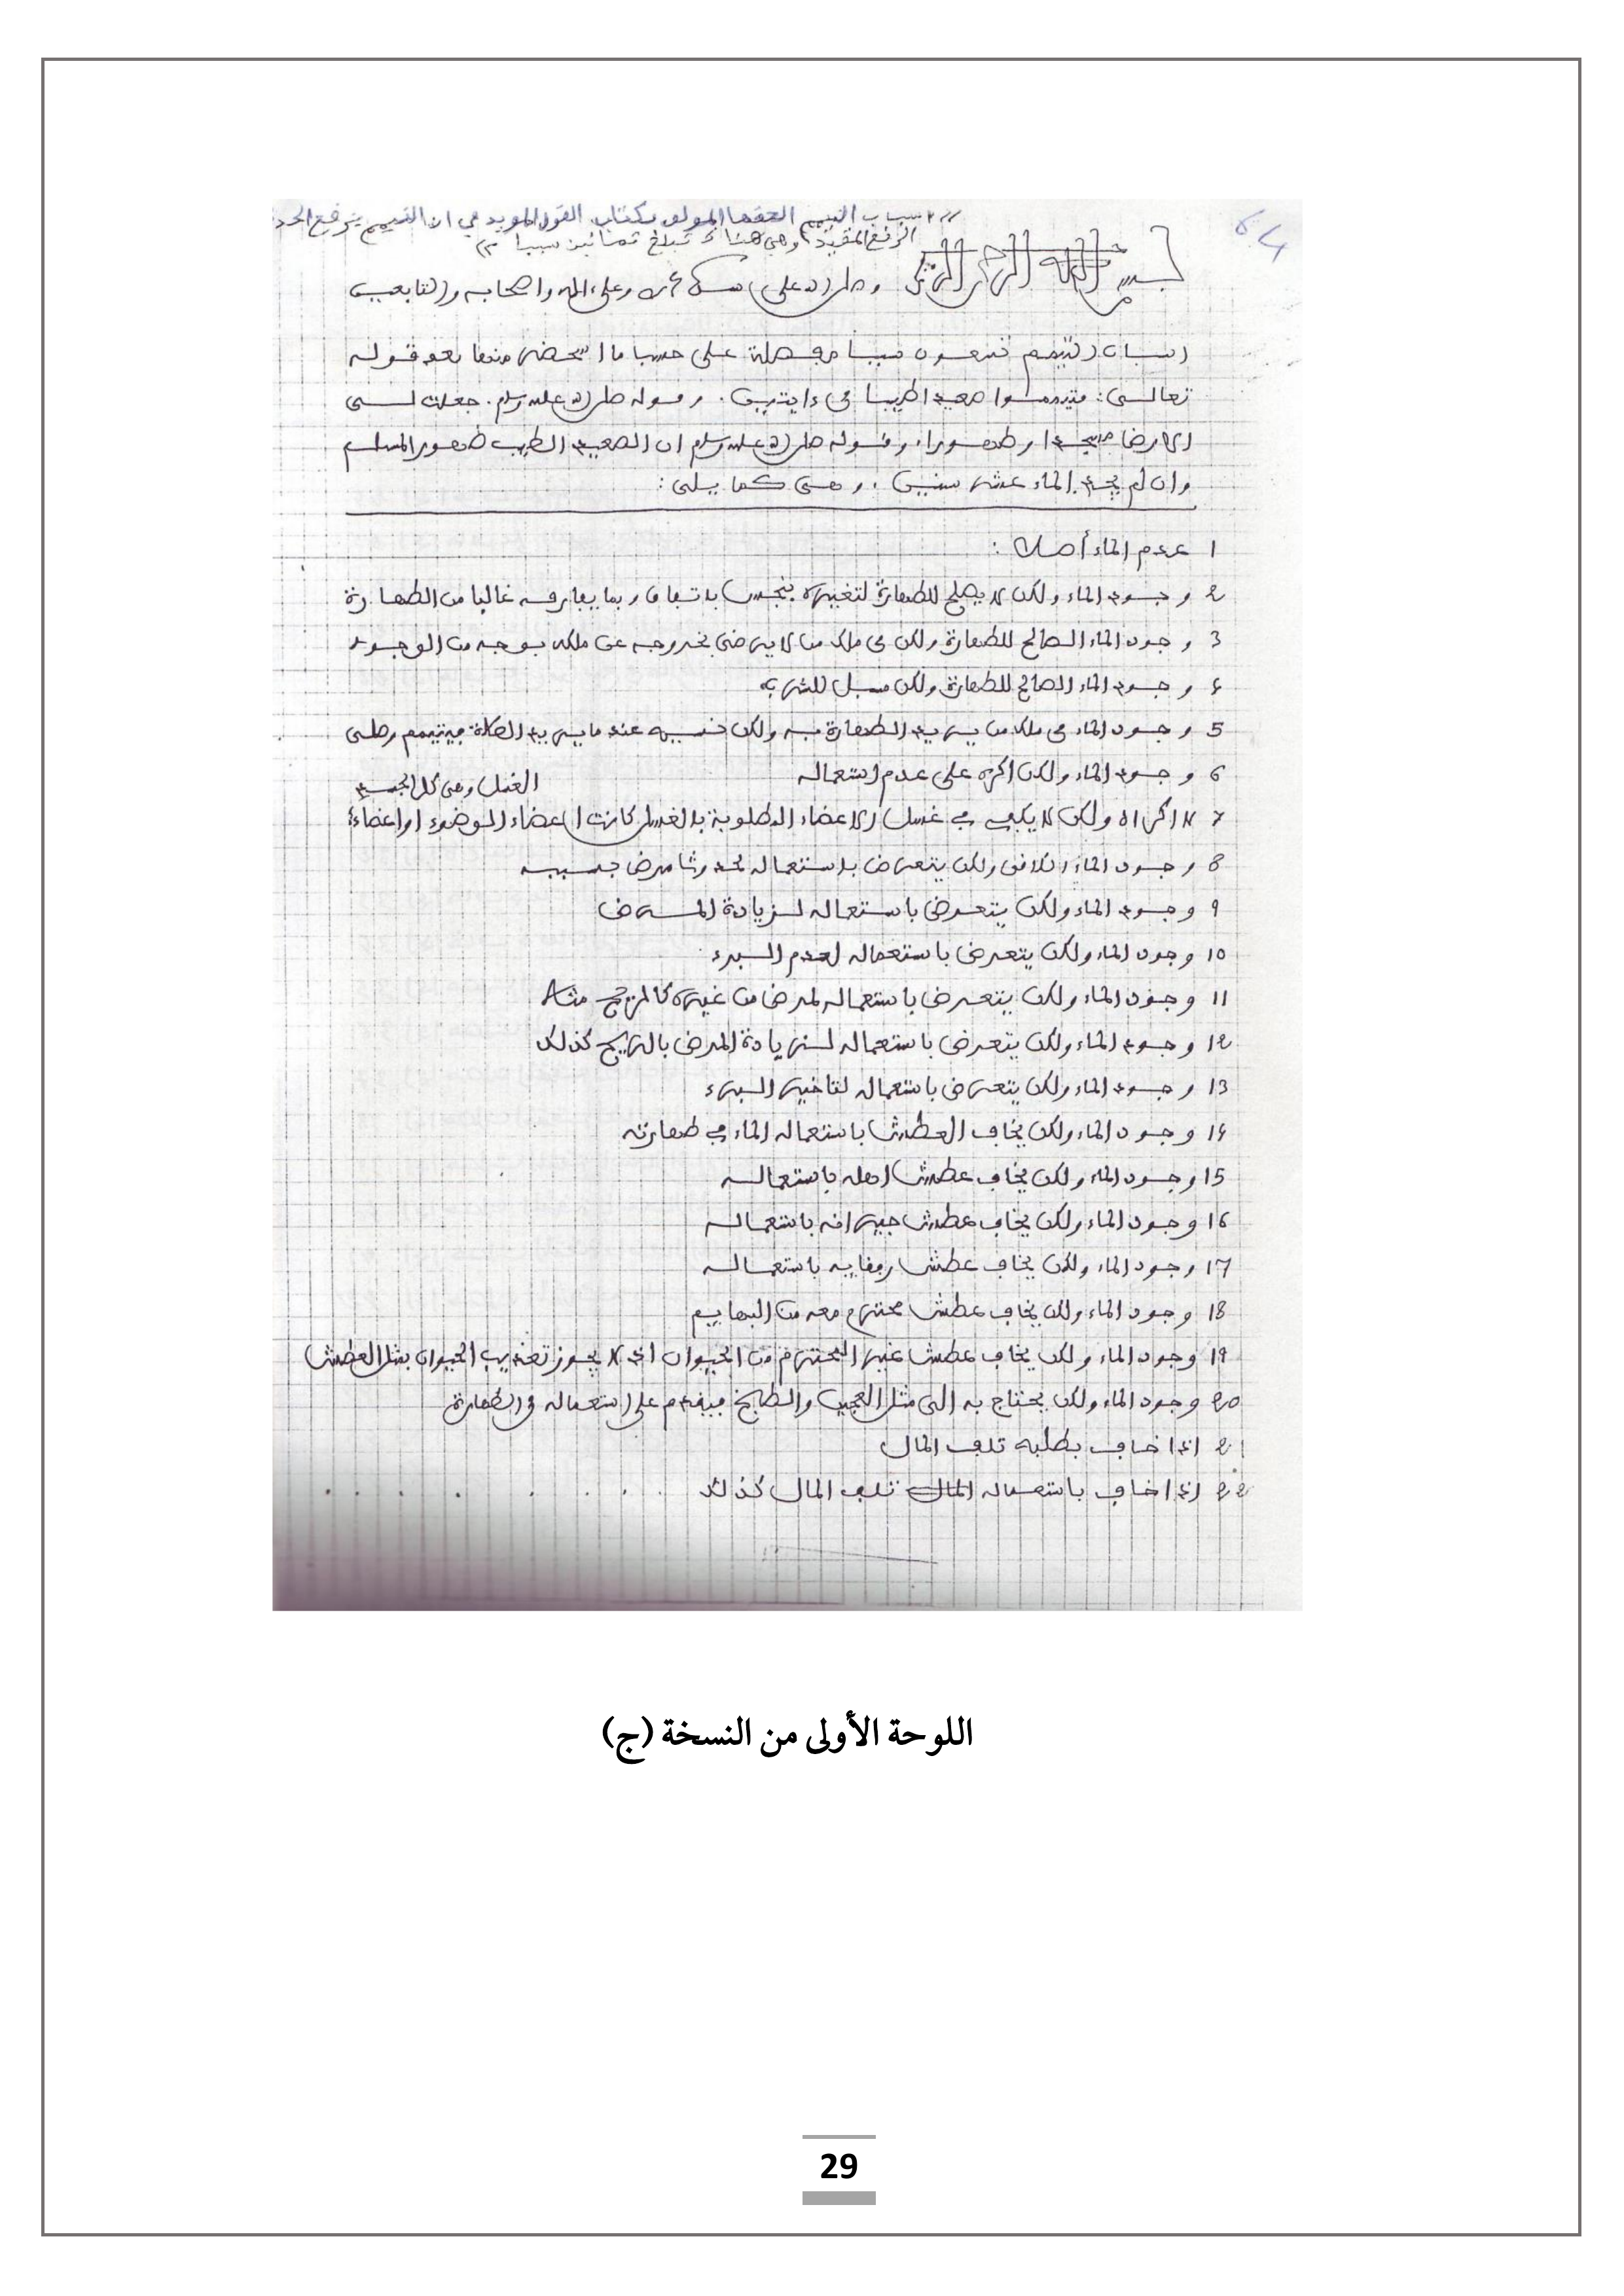 اسباب التيمم الحقها المولف بكتاب القول المويد في ان التيمم يرفع الحد
الرفع المقيد وهي هنا تبلغ ثمانين سببا
64
بسم الله الرحمن الرحيم وصلى الله على سيدنا محمد وعلى ءاله واصحابه والتابعين
اسباب التيمم تسعون سببا مفصلة على حسب ما استحضر منها بعد قوله
تعالى: فتيمموا صعيدا طيبا في ءايتين. وقوله صلى الله عليه وسلم. جعلت لي
الارض مسجدا وطهورا، وقوله صلى الله عليه وسلم ان الصعيد الطيب طهور المسلم
وان لم يجد الماء عشر سنين، وهي كما يلي:
1 عدم الماء أصلا:
2 وجود الماء ولكن لا يصلح للطهارة لتغيره بنجس باتفاق وبما يفارقه غالبا من الطهارة
3 وجود الماء الصالح للطهارة ولكن في ملك من لا يرضى بخروجه عن ملكه بوجه من الوجوه
4 وجود الماء الصالح للطهارة ولكن مسبل للشرب
5 وجود الماء في ملك من يريد الطهارة به ولكن نسيه عند ما يريد الصلاة فيتيمم وصلى
6 وجود الماء ولكن اكره على عدم استعماله
الغسل وهي كل الجسد
7 لا اكراه ولكن لا يكفي في غسل الاعضاء المطلوبة بالغسل كانت اعضاء الوضوء او اعضاء
8 وجود الماء الكافي ولكن يتعرض باستعماله لحدوث مرض بسببه
9 وجود الماء ولكن يتعرض باستعماله لزيادة المرض
10 وجود الماء ولكن يتعرض باستعماله لعدم البرء
11 وجود الماء ولكن يتعرض باستعماله لمرض من غيره كالمريح مثلا
12 وجود الماء ولكن يتعرض باستعماله لزيادة المرض بالريح كذلك
13 وجود الماء ولكن يتعرض باستعماله لتاخير البرء
14 وجود الماء ولكن يخاف العطش باستعماله الماء في طهارته
15 وجود الماء ولكن يخاف عطش اهله باستعماله
16 وجود الماء ولكن يخاف عطش جيرانه باستعماله
17 وجود الماء ولكن يخاف عطش رفقايه باستعماله
18 وجود الماء ولكن يخاف عطش محترم معه من البهايم
19 وجود الماء ولكن يخاف عطش غير المحترم من الحيوان اذ لا يجوز تعذيب الحيوان بمثل العطش
20 وجود الماء ولكن يحتاج به الى مثل العجين والطبخ فيقدم على استعماله في الطهارة
21 اذا خاف بطلبه تلف المال
22 اذا خاف باستعماله المال تلف المال كذلك
اللوحة الأولى من النسخة (ج)
29